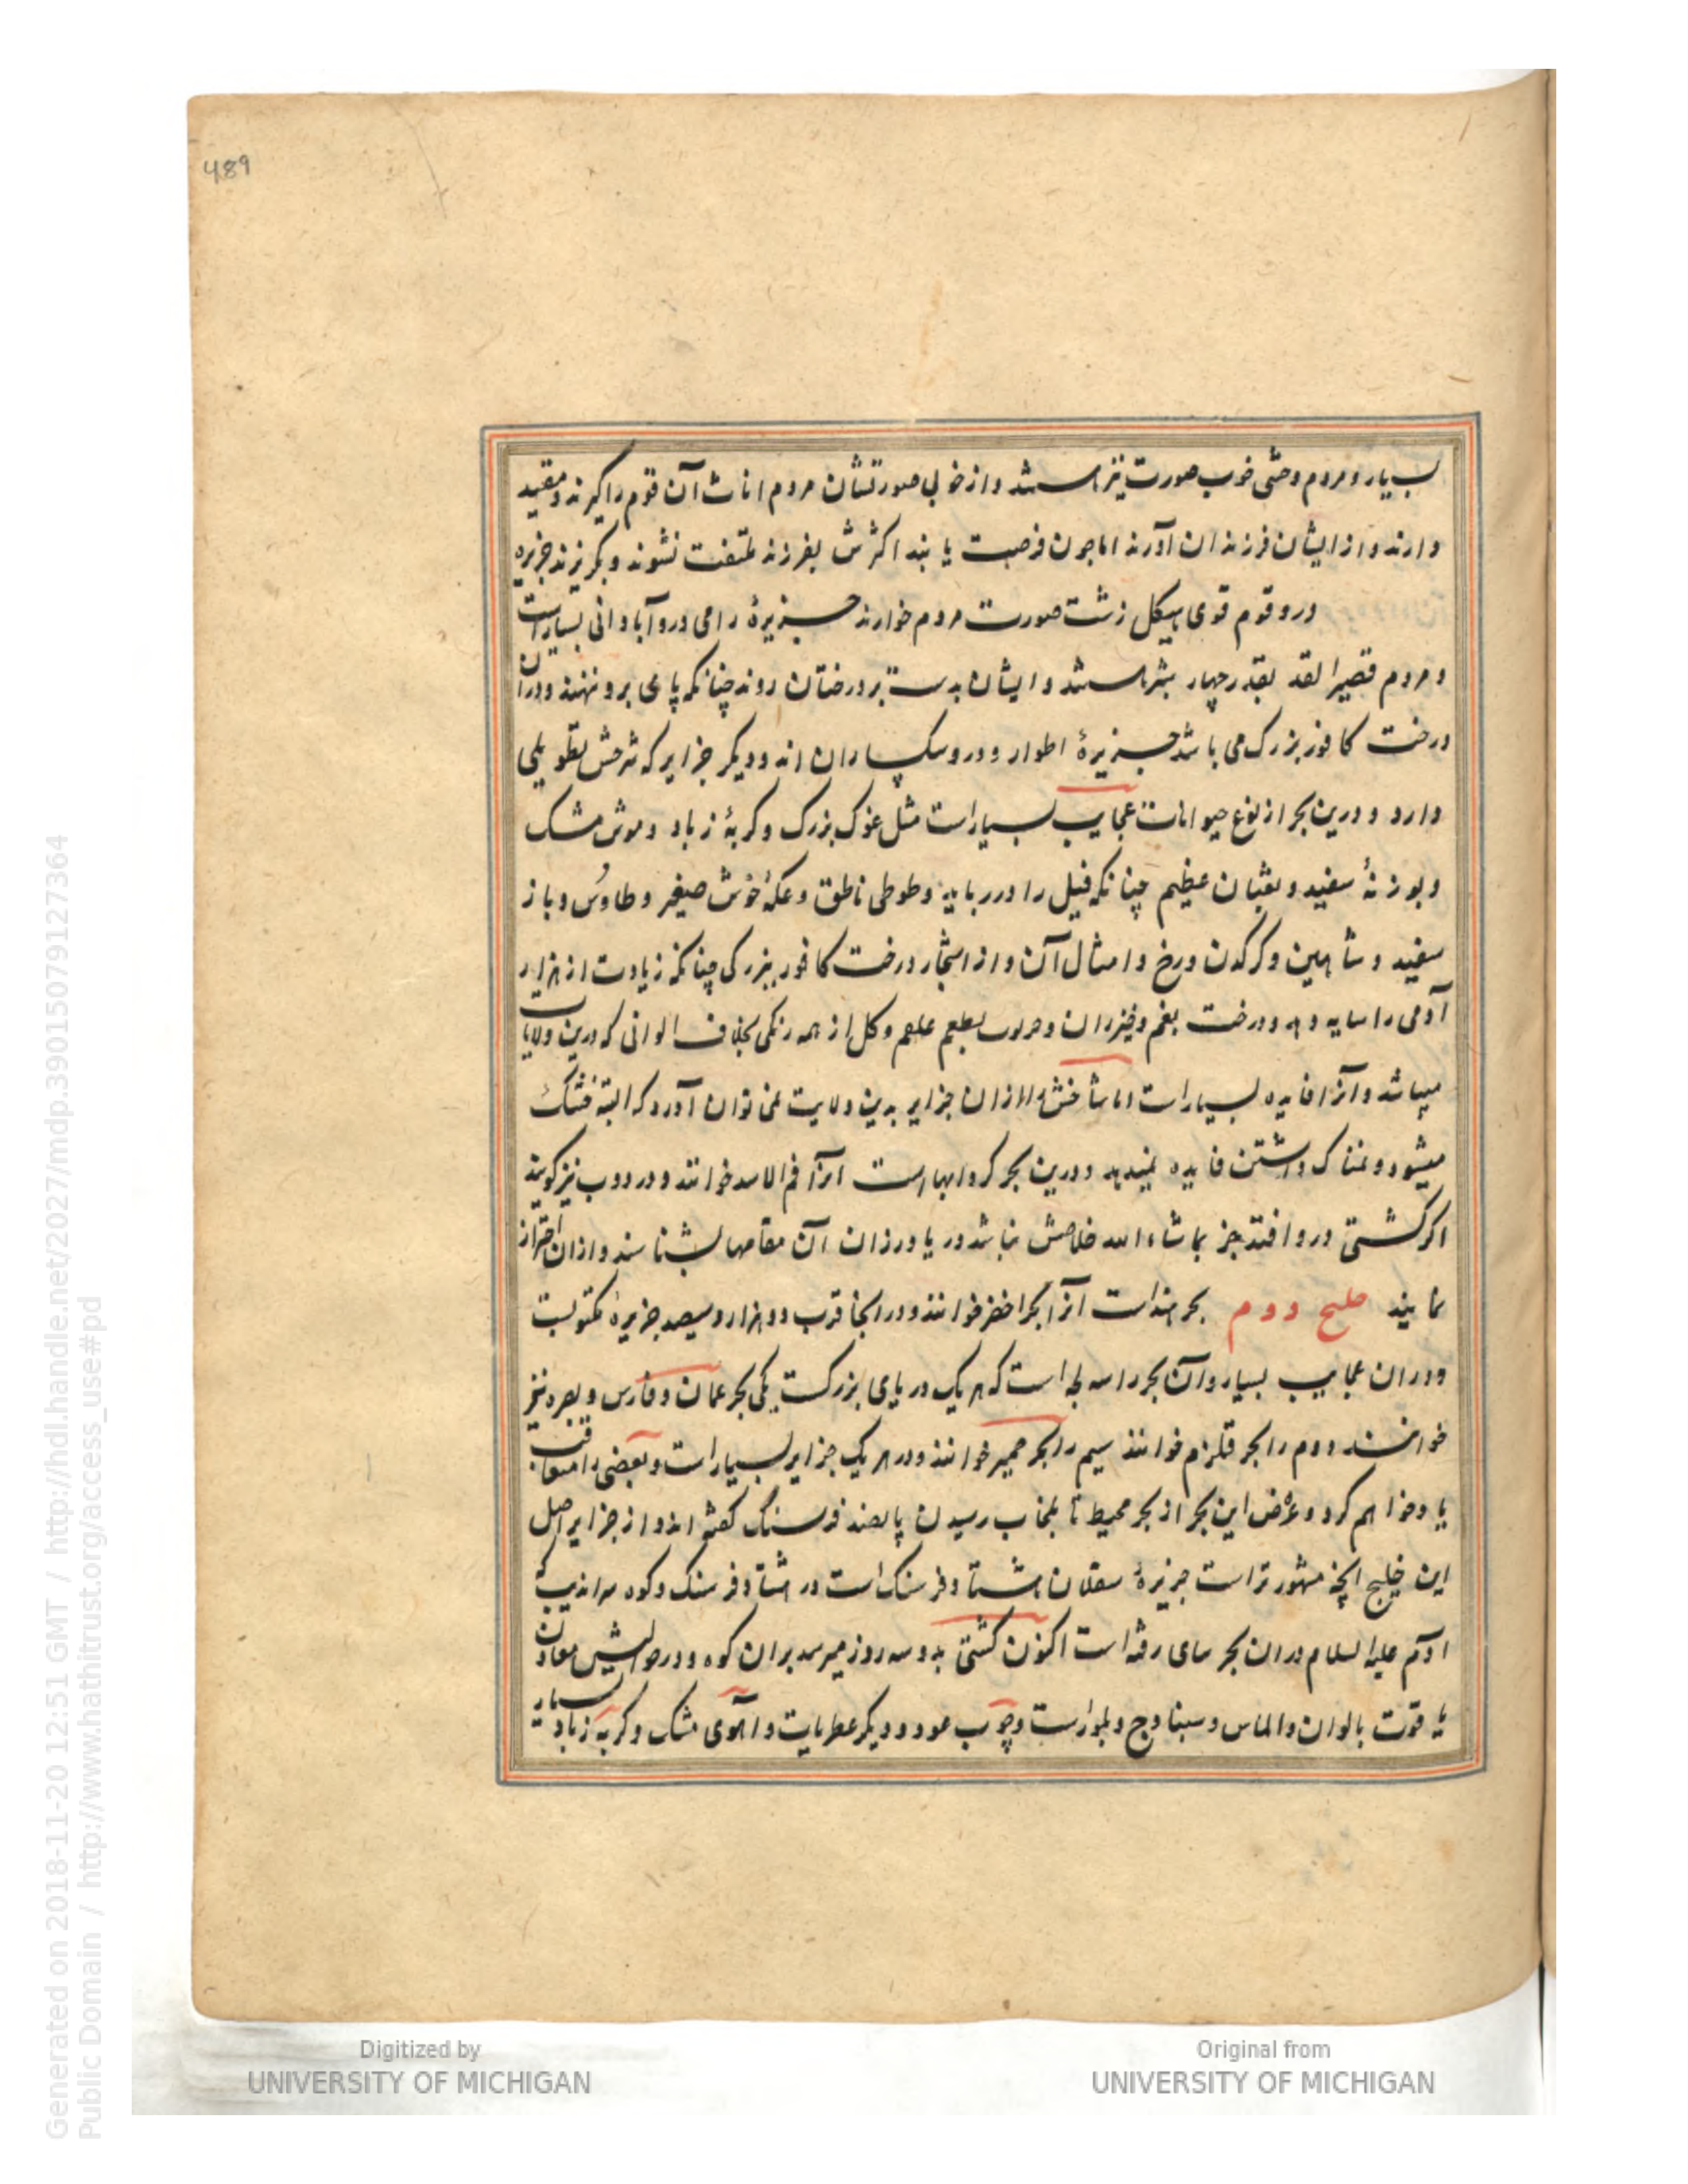 489
بسیار و مردم وحشی خوب صورت نیز باشند و از خوبی صورتشان مردم اناث آن قوم را گیرند و مقید
دارند و از ایشان فرزندان آورند اما چون فرصت یابند اکثرش بفرزند ملتفت نشوند و بگریزند جزیره
درو قوم قوی هیکل زشت صورت مردم خوارند جزیرهٔ رامی درو آبادانی بسیار است
و مردم قصیر القد بقدر چهار شبر باشند و ایشان بدست بر درختان روند چنانکه پای برو ننهند و دران
درخت کافور بزرک می باشد جزیرهٔ اطوار و درو سکساران اند و دیگر جزایر که شرحش تطویلی
دارد و درین بحر از نوع حیوانات عجایب بسیار است مثل غوک بزرک و کربهٔ زباد و موش مشک
و بوزنهٔ سفید و ثعبان عظیم چنانکه فیل را در رباید و طوطی ناطق و عکهٔ خوش صفیر و طاوس و باز
سفید و شاهین و کرکدن و رخ و امثال آن و از اشجار درخت کافور ببزرکی چنانکه زیادت از هزار
آدمی را سایه دهد و درخت بقم و خیزران و بطعم علقم و کل از همه رنکی بخلاف الوانی که درین ولایات
میباشد و آنرا فایده بسیار است اما شاخش از ان جزایر بدین ولایت نمی توان آورد که البته خشک
میشود و نمناک داشتن فایده نمیدهد و درین بحر کردابها است آنرا فم الاسد خوانند و دردوب نیز گویند
اگر کشتی درو افتد جز بماشاء الله خلاصش نباشد دریا ورزان آن مقامها بشناسند و از ان احتراز
نمایند خلیج دوم بحر هند است آنرا بحر اخضر خوانند و در انجا قرب دو هزار و سیصد جزیره مکتوبست
و دران عجایب بسیار و آن بحر را سه لجه است که هر یک دریای بزرکست یکی بحر عمان و فارس و بصره نیز
خوانند دوم را بحر قلزم خوانند سیم را بحر حمیر خوانند و در هر یک جزایر بسیار است و بعضی را متعاقب
یاد خواهم کرد و عرض این بحر از بحر محیط تا بلجاب رسیدن پانصد فرسنک گفته اند و از جزایر اصل
این خلیج انچه مشهور تر است جزیرهٔ سقلان هشتاد فرسنک است در هشتاد فرسنک و کوه سراندیب که
آدم علیه السلام دران بحر سای رفته است اکنون کشتی بدو سه روز میرسد بران کوه و در حوالیش معادن
یاقوت بالوان و الماس و سنبادج و بلور است و چوب عود و دیگر عطریات و آهوی مشک و کربه زباد بسیار
Digitized by
UNIVERSITY OF MICHIGAN
Original from
UNIVERSITY OF MICHIGAN
Generated on 2018-11-20 12:51 GMT / http://hdl.handle.net/2027/mdp.39015079127364
Public Domain / http://www.hathitrust.org/access_use#pd